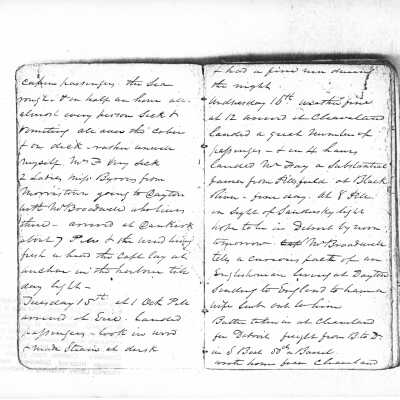 cabin passengers the Sea
rough & in half an hour all
almost every person Sick &
vomiting all over the Cabin
& on deck - rather unwell
myself Mr D very sick
2 Ladies Miss Byrons from
Morristown going to Dayton
with Mr Broadwell who lives
there - arrived at Dunkirk
about 7 P.M & the wind being
fresh a head the Capt lay at
anchor in the harbour till
day light -
Tuesday 15th at 1 Ock P.M
arrived at Erie. Landed
passengers - took in wood
& made Steam at dusk
& had a fine run during
the night
Wednesday 16th weather fine
at 12 arrived at Cleaveland
Landed a great Number of
passengers - & in 4 hours
landed Mr Day a Substantial
farmer from Pittsfield at Black
River - fine day. At 8 P.M
in Sight of Sandusky light
hope to be in Detroit by noon
tomorrow Mr Broadwell
tells a curious fact of an
Englishman living at Dayton
Sending to England to have a
wife Sent out to him
Butter taken in at Cleaveland
for Detroit freight from B to D
wrote home from Cleaveland